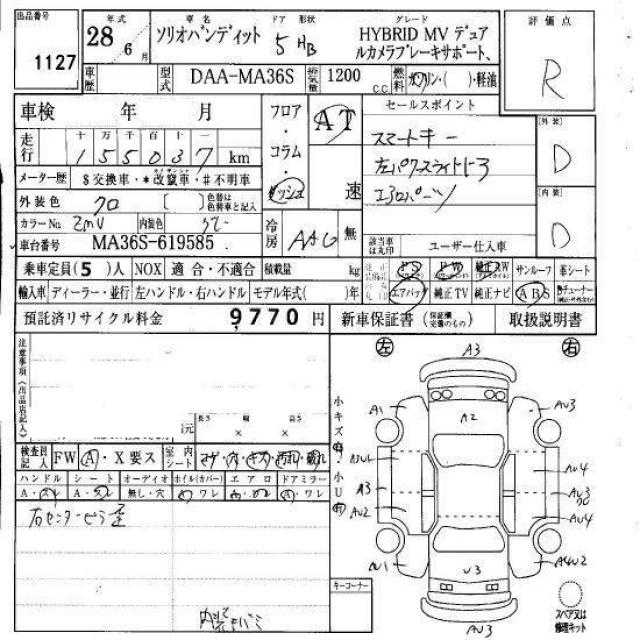 出品番号 1127
年式 28 6月
車名 ソリオバンディット
ドア 形状 5 HB
グレード HYBRID MV デュアルカメラブレーキサポート、
評価点 R
車歴
型式 DAA-MA36S
排気量 1200 c.c.
燃料 ガソリン・( )・軽油
車検 年 月
フロア・コラム・ダッシュ
AT 速
セールスポイント
スマートキー
左パワースライドドア
エアロパーツ
[外装] D
[内装] D
走行 十万千百十一
155037 km
メーター歴 $交換車・*改竄車・#不明車
外装色 クロ [ ] 色替は色替車と記入
カラーNo ZMV 内装色
車台番号 MA36S-619585
冷房 AAC 無
該当車は丸印 ユーザー仕入車
乗車定員(5)人 NOX 適合・不適合 積載量 kg
PS PW 純正AW サンルーフ 革シート
輸入車 ディーラー・並行 左ハンドル・右ハンドル モデル年式( )年
エアバッグ 純正TV 純正ナビ ABS
預託済リサイクル料金 9,770 円
新車保証書 (保証欄完備のもの) 取扱説明書
注意事項(出品店記入)
長さ 幅 高さ
× ×
検査員記入 FW A・X要ス 室内シート コゲ・穴・キズ・汚れ・破れ
ハンドル シート オーディオ ホイル(カバー) エアロ ドアミラー
無し・穴
右センターピラー歪
キーコーナー
小キズ有・小U有
左 右
A3
A1 A2 AU3
AU4
A3 AU3
AU2 AU4
AU1 U3 A4U2
AU3
スペア又は修理キット